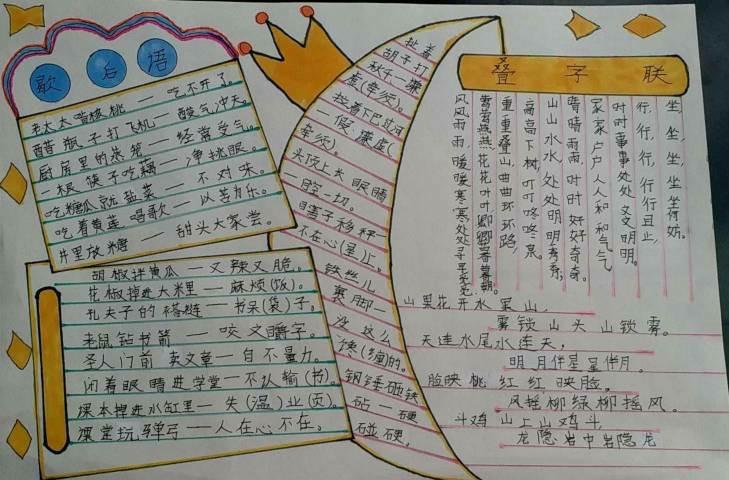 歇后语
老太太啃核桃——吃不开了。
醋瓶子打飞机——酸气冲天。
厨房里的蒸笼——经常受气。
一根筷子吃藕——净挑眼。
吃糖瓜就盐菜——不对味。
吃着黄莲唱歌——以苦为乐。
井里放糖——甜头大家尝。
胡椒拌黄瓜——又辣又脆。
花椒掉进大米里——麻烦(饭)。
孔夫子的褡裢——书呆(袋)子。
老鼠钻书箱——咬文嚼字。
圣人门前卖文章——自不量力。
闭着眼睛进学堂——不认输(书)。
课本掉进水缸里——失(湿)业(页)。
课堂玩弹弓——人在心不在。
扯着
胡子打
秋千—谦
虚(牵须)。
拽着下巴过河
—假谦虚(
牵须)。
头顶上长眼睛
—目空一切。
瞎子移秤—
不在心(星)上。
铁丝儿
裹脚—
没这么
缠(缠)的。
钢锤砸铁
砧—硬
碰硬。
叠字联
坐,坐,坐,坐坐何妨。
行,行,行,行行且止,
时时事事处处文文明明。
家家户户人人和和气气
晴晴雨雨时时好好奇奇。
山山水水处处明明秀秀,
高高下下树,叮叮咚咚泉。
重重叠叠山,曲曲环环路,
莺莺燕燕花花叶叶卿卿暮暮朝朝。
风风雨雨,暖暖寒寒处处寻寻觅觅
山果花开水果山,
雾锁山头山锁雾。
天连水尾水连天,
明月伴星星伴月。
脸映桃红红映脸。
风摇柳绿柳摇风。
斗鸡山上山鸡斗,
龙隐岩中岩隐龙